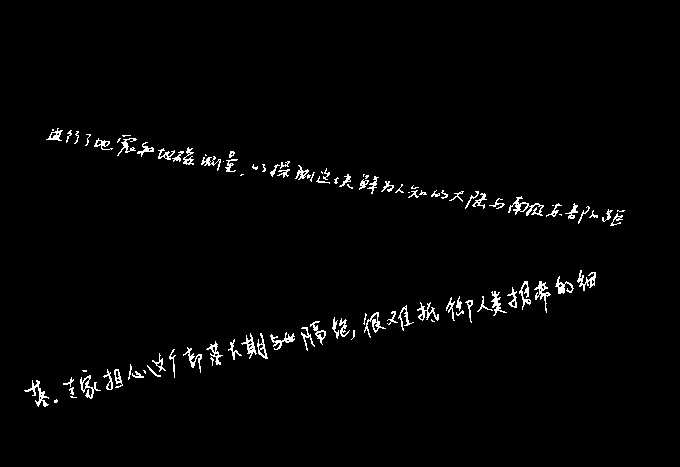 进行了地震和地磁测量，以探测这块鲜为人知的大陆与南极东部的距
落。专家担心这个部落长期与世隔绝，很难抵御人类携带的细